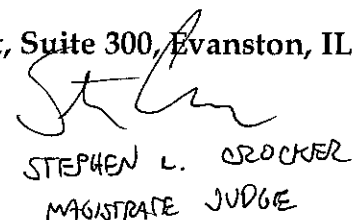 , Suite 300, Evanston, IL
STEPHEN L. CROCKER
MAGISTRATE JUDGE